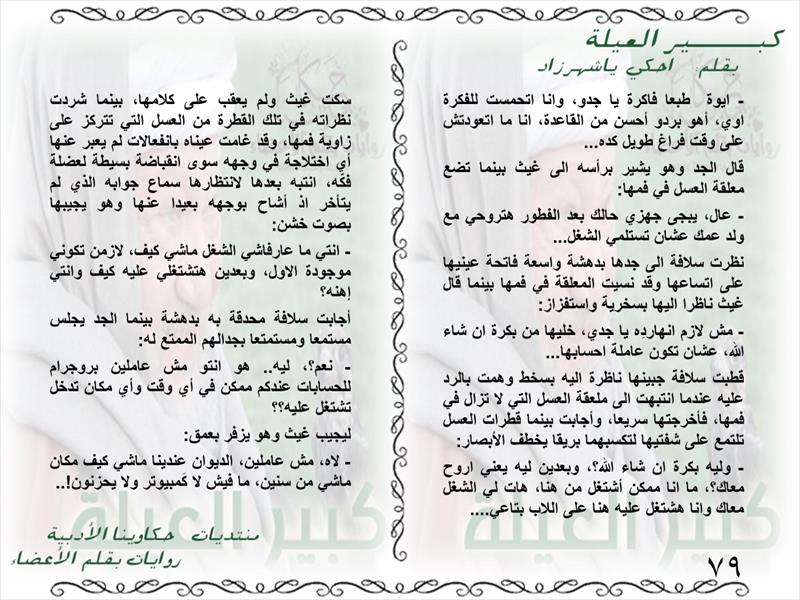 كبـــــــير العيلة
بقلم احكي ياشهرزاد
- ايوة طبعا فاكرة يا جدو، وانا اتحمست للفكرة
اوي، أهو بردو أحسن من القاعدة، انا ما اتعودتش
على وقت فراغ طويل كده...
قال الجد وهو يشير برأسه الى غيث بينما تضع
معلقة العسل في فمها:
- عال، يبجى جهزي حالك بعد الفطور هتروحي مع
ولد عمك عشان تستلمي الشغل...
نظرت سلافة الى جدها بدهشة واسعة فاتحة عينيها
على اتساعها وقد نسيت المعلقة في فمها بينما قال
غيث ناظرا اليها بسخرية واستفزاز:
- مش لازم انهارده يا جدي، خليها من بكرة ان شاء
الله، عشان تكون عاملة احسابها...
قطبت سلافة جبينها ناظرة اليه بسخط وهمت بالرد
عليه عندما انتبهت الى ملعقة العسل التي لا تزال في
فمها، فأخرجتها سريعا، وأجابت بينما قطرات العسل
تلتمع على شفتيها لتكسبهما بريقا يخطف الأبصار:
- وليه بكرة ان شاء الله؟، وبعدين ليه يعني اروح
معاك؟، ما انا ممكن أشتغل من هنا، هات لي الشغل
معاك وانا هشتغل عليه هنا على اللاب بتاعي....
سكت غيث ولم يعقب على كلامها، بينما شردت
نظراته في تلك القطرة من العسل التي تتركز على
زاوية فمها، وقد غامت عيناه بانفعالات لم يعبر عنها
أي اختلاجة في وجهه سوى انقباضة بسيطة لعضلة
فكّه، انتبه بعدها لانتظارها سماع جوابه الذي لم
يتأخر اذ أشاح بوجهه بعيدا عنها وهو يجيبها
بصوت خشن:
- انتي ما عارفاشي الشغل ماشي كيف، لازمن تكوني
موجودة الاول، وبعدين هتشتغلي عليه كيف وانتي
إهنه؟
أجابت سلافة محدقة به بدهشة بينما الجد يجلس
مستمعا ومستمتعا بجدالهم الممتع له:
- نعم؟، ليه.. هو انتو مش عاملين بروجرام
للحسابات عندكم ممكن في أي وقت وأي مكان تدخل
تشتغل عليه؟؟
ليجيب غيث وهو يزفر بعمق:
- لاه، مش عاملين، الديوان عندينا ماشي كيف مكان
ماشي من سنين، ما فيش لا كَمبيوتر ولا يحزنون!..
كبير العيلة
كبير العيلة
منتديات حكاوينا الأدبية
روايات بقلم الأعضاء
٧٩